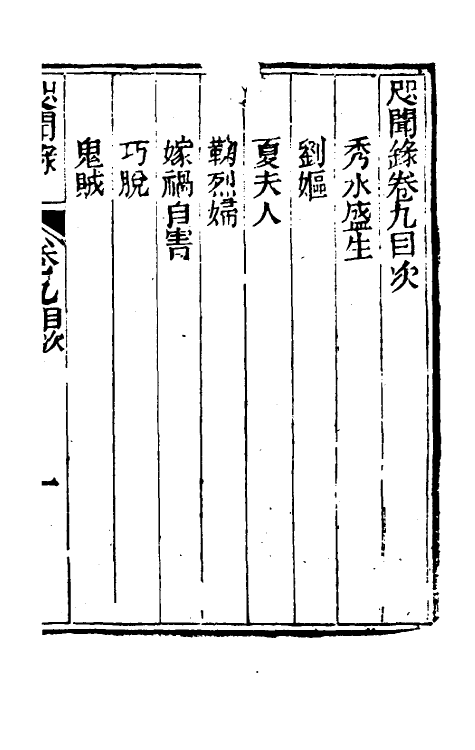 咫聞錄卷九目次
秀水盛生
劉嫗
夏夫人
鞠烈婦
嫁禍自害
巧脫
鬼賊
咫聞錄
卷九目次
一